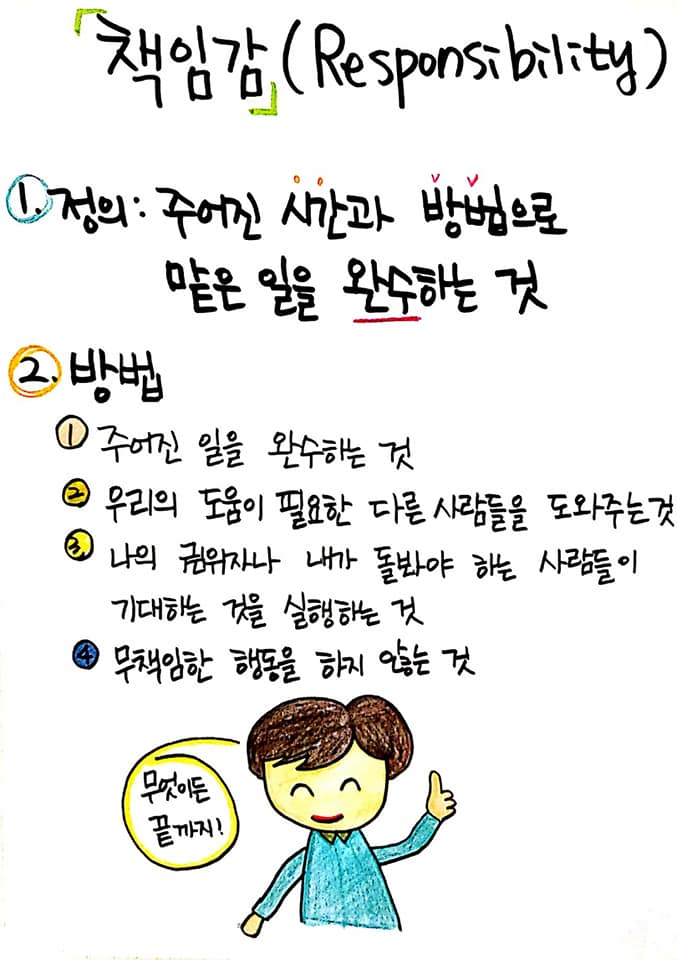 「책임감」(Responsibility)
1. 정의: 주어진 시간과 방법으로
맡은 일을 완수하는 것
2. 방법
1 주어진 일을 완수하는 것
2 우리의 도움이 필요한 다른 사람들을 도와주는것
3. 나의 권위자나 내가 돌봐야 하는 사람들이
기대하는 것을 실행하는 것
4 무책임한 행동을 하지 않는 것
무엇이든
끝까지!